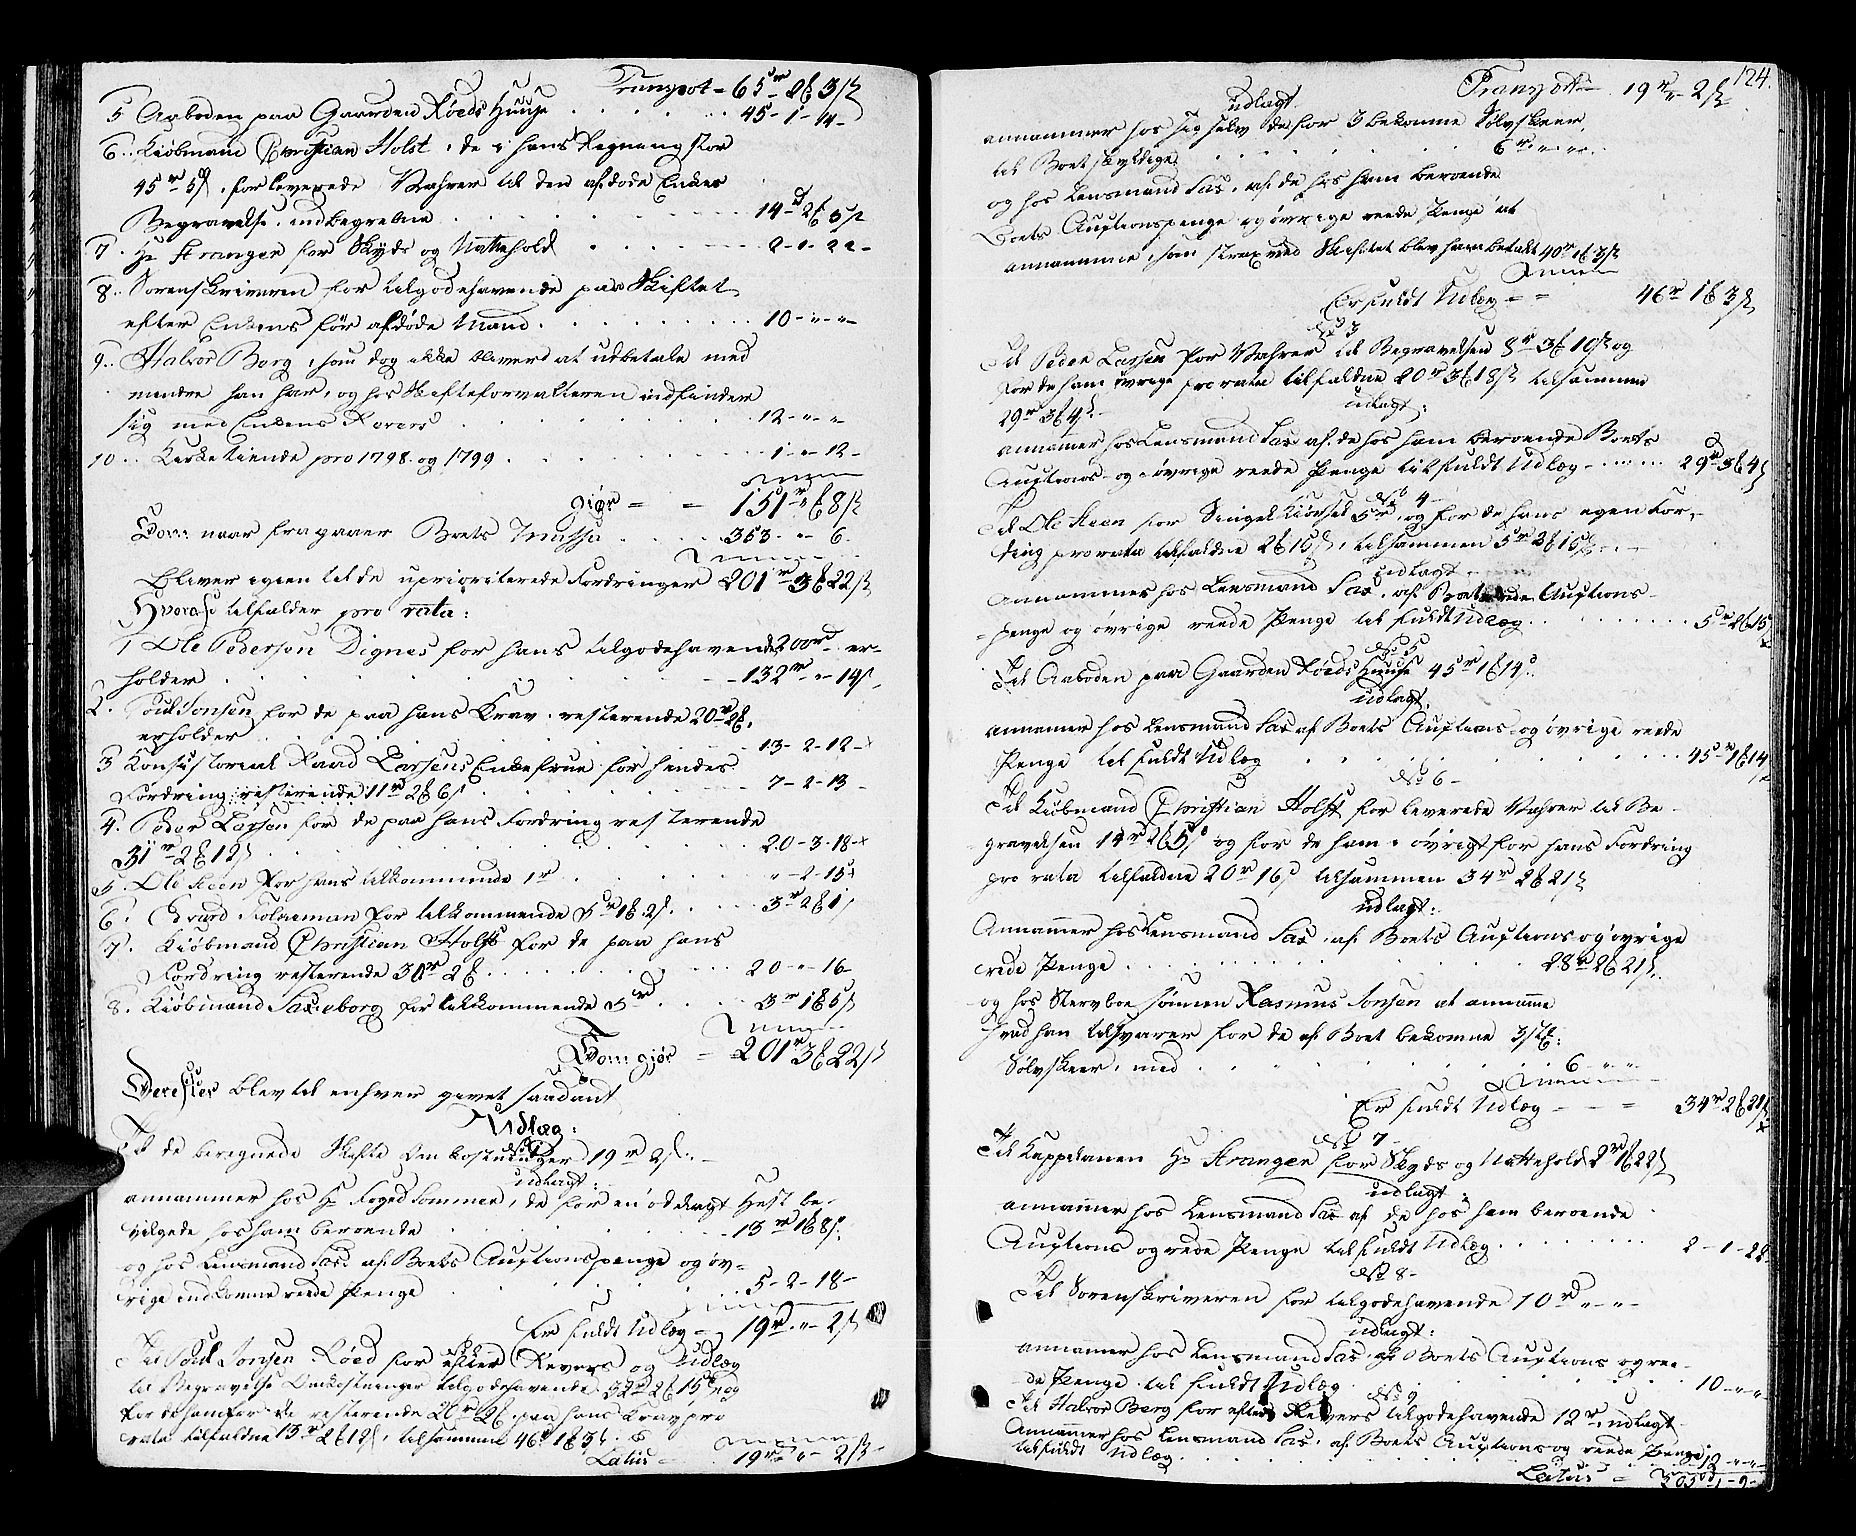 Transport = 65 rd 2 ß 3 s
5 Aaboden paa Gaarden Røeds Huuse . . . 45 - 1 - 14 -
6. Kiøbmand Christian Holst, de i hans Regning for
45 rd 5 s, for leverede Vahrer til den afdøde Enkes
Begravelse indbegrebne . . . 14 - 2 ß 5 s
7. Hr Stranger for Skyds og Nattehold . . . 2 - 1 - 22 -
8. Sorenskriveren for tilgodehavende paa Skiftet
efter Enkens før afdøde Mand . . . 10 - " - " -
9. Halvor Berg, som dog ikke bliver at udbetale med
mindre han har, og hos Skifteforvalteren indfinder
sig med Enkens Revers . . . 12 - " - "
10. Kirketiende pro 1798 og 1799 . . . 1 - " - 12 -
giør = = 151 rd " ß 8 s
Som naar fragaaer Boets Massa . . . 353 - " - 6
Bliver igien til de uprioriterede Fordringer 201 rd 3 ß 22 s
Hvoraf tilfalder pro rata:
1 Ole Pedersen Dignes for hans tilgodehavende 200 rd er-
holder . . . 132 rd " - 14 s
2. Poul Jonsen for de paa hans Krav resterende 20 rd 2 ß
erholder . . . 13 - 2 - 12 -
3 Konsistorial Raad Larsens Enkefrue for hendes
Fordring resterende 11 rd 2 ß 6 s . . . 7 - 2 - 13 -
4. Peder Larsen for de paa hans Fordring resterende
31 rd 2 ß 12 s . . . 20 - 3 - 18 -
5. Ole Steen for hans tilkommende 1 rd . . . " - 2 - 15
6. Evard Kolneman for tilkommende 5 rd 1 ß 2 s . . . 3 rd 2 ß 1 s
7. Kiøbmand Christian Holst for de paa hans
Fordring resterende 30 rd 2 ß . . . 20 - " - 16 -
8. Kiøbmand Saxeborg for tilkommende 5 rd . . . 3 rd 1 ß 5 s
Som giør = 201 rd 3 ß 22 s
Derefter blev til enhver givet saadant
Udlæg:
Til de beregnede Skifte Omkostninger 19 rd 2 s
udlagt:
annammer hos Hr Foged Sommer, de for en ødelagt Hest be-
vilgede hos ham beroende . . . 13 rd 1 ß 8 s
og hos Lensmand Sax, af Boets Auctionspenge og øv-
rige indkomne reede Penge . . . 5 - 2 - 18 -
Er fuldt Udlæg = 19 rd " - 2 s
Til Poul Jonsen Røed for efter Revers og Udlæg
til Begravelse Omkostninger tilgodehavende 32 rd 2 ß 15 s og
for de ham for de resterende 20 rd 2 ß paa hans Krav pro
rata tilfaldne 13 rd 2 ß 12 s, tilsammen 46 rd 1 ß 3 s
Latus = 19 rd " - 2 s
124.
Transport = 19 rd " - 2 s
udlagt.
annammer hos sig selv de for 3 bekomne Sølvskeer,
til Boet skyldige . . . 6 rd " - " -
og hos Lensmand Sax, af de hos ham beroende
Boets Auctionspenge og øvrige reede Penge at
annamme, som strax ved Skiftet blev ham betalt 40 rd 1 ß 3 s
Er fuldt Udlæg = = 46 rd 1 ß 3 s
No 3
Til Peder Larsen for Vahrer til Begravelsen 8 rd 3 ß 10 s og
for de ham øvrige pro rata tilfaldne 20 rd 3 ß 18 s tilsammen
29 rd 3 ß 4 s
udlagt:
annammer hos Lensmand Sax af de hos ham beroende Boets
Auctions- og øvrige reede Penge til fuldt Udlæg . . . 29 rd 3 ß 4 s
No 4
Til Ole Steen for Ringel Kiørsel 5 rd, og for de hans egen For-
dring pro rata tilfaldne 2 ß 15 s, tilsammen 5 rd 2 ß 15 s
udlagt
annammes hos Lensmand Sax, af Boets Auctions-
Penge og øvrige reede Penge til fuldt Udlæg . . . 5 rd 2 ß 15
No 5
Til Aaboden paa Gaarden Røeds Huuse 45 rd 1 ß 14 s
udlagt.
annamer hos Lensmand Sax af Boets Auctions- og øvrige reede
Penge til fuldt Udlæg . . . 45 rd 1 ß 14
No 6 -
Til Kiøbmand Christian Holst for leverede Vahrer til Be-
gravelsen 14 rd 2 ß 5 s og for de ham i øvrigt for hans Fordring
pro rata tilfaldne 20 rd 16 s tilsammen 34 rd 2 ß 21 s
udlagt:
Annammer hos Lensmand Sax, af Boets Auctions og øvrige
rede Penge . . . 28 rd 2 ß 21 s
og hos Stervboe Sønnen Rasmus Jonsen at annamme
hvad han tilsvarer for de af Boet bekomne 3 st:
Sølvskeer, med . . . 6 - " - "
Er fuldt Udlæg - - = 34 rd 2 ß 21 s
No 7
Til Kappelanen Hr Stranger for Skyds og Nattehold 2 rd 1 ß 22 s
udlagt:
annammer hos Lensmand Sax af de hos ham beroende
Auctions og rede Penge til fuldt Udlæg . . . 2 - 1 - 22
No 8 -
Til Sorenskriveren for tilgodehavende 10 rd " - " -
udlagt:
annammer hos Lensmand Sax, af Boets Auctions og ree-
de Penge til fuldt Udlæg . . . 10 - " - "
No 9
Til Halvor Berg for efter Revers tilgodehavende 12 rd, udlagt
Annammer hos Lensmand Sax, af Boets Auctions og reede Penge
til fuldt Udlæg . . . 12 - " - "
Latus =